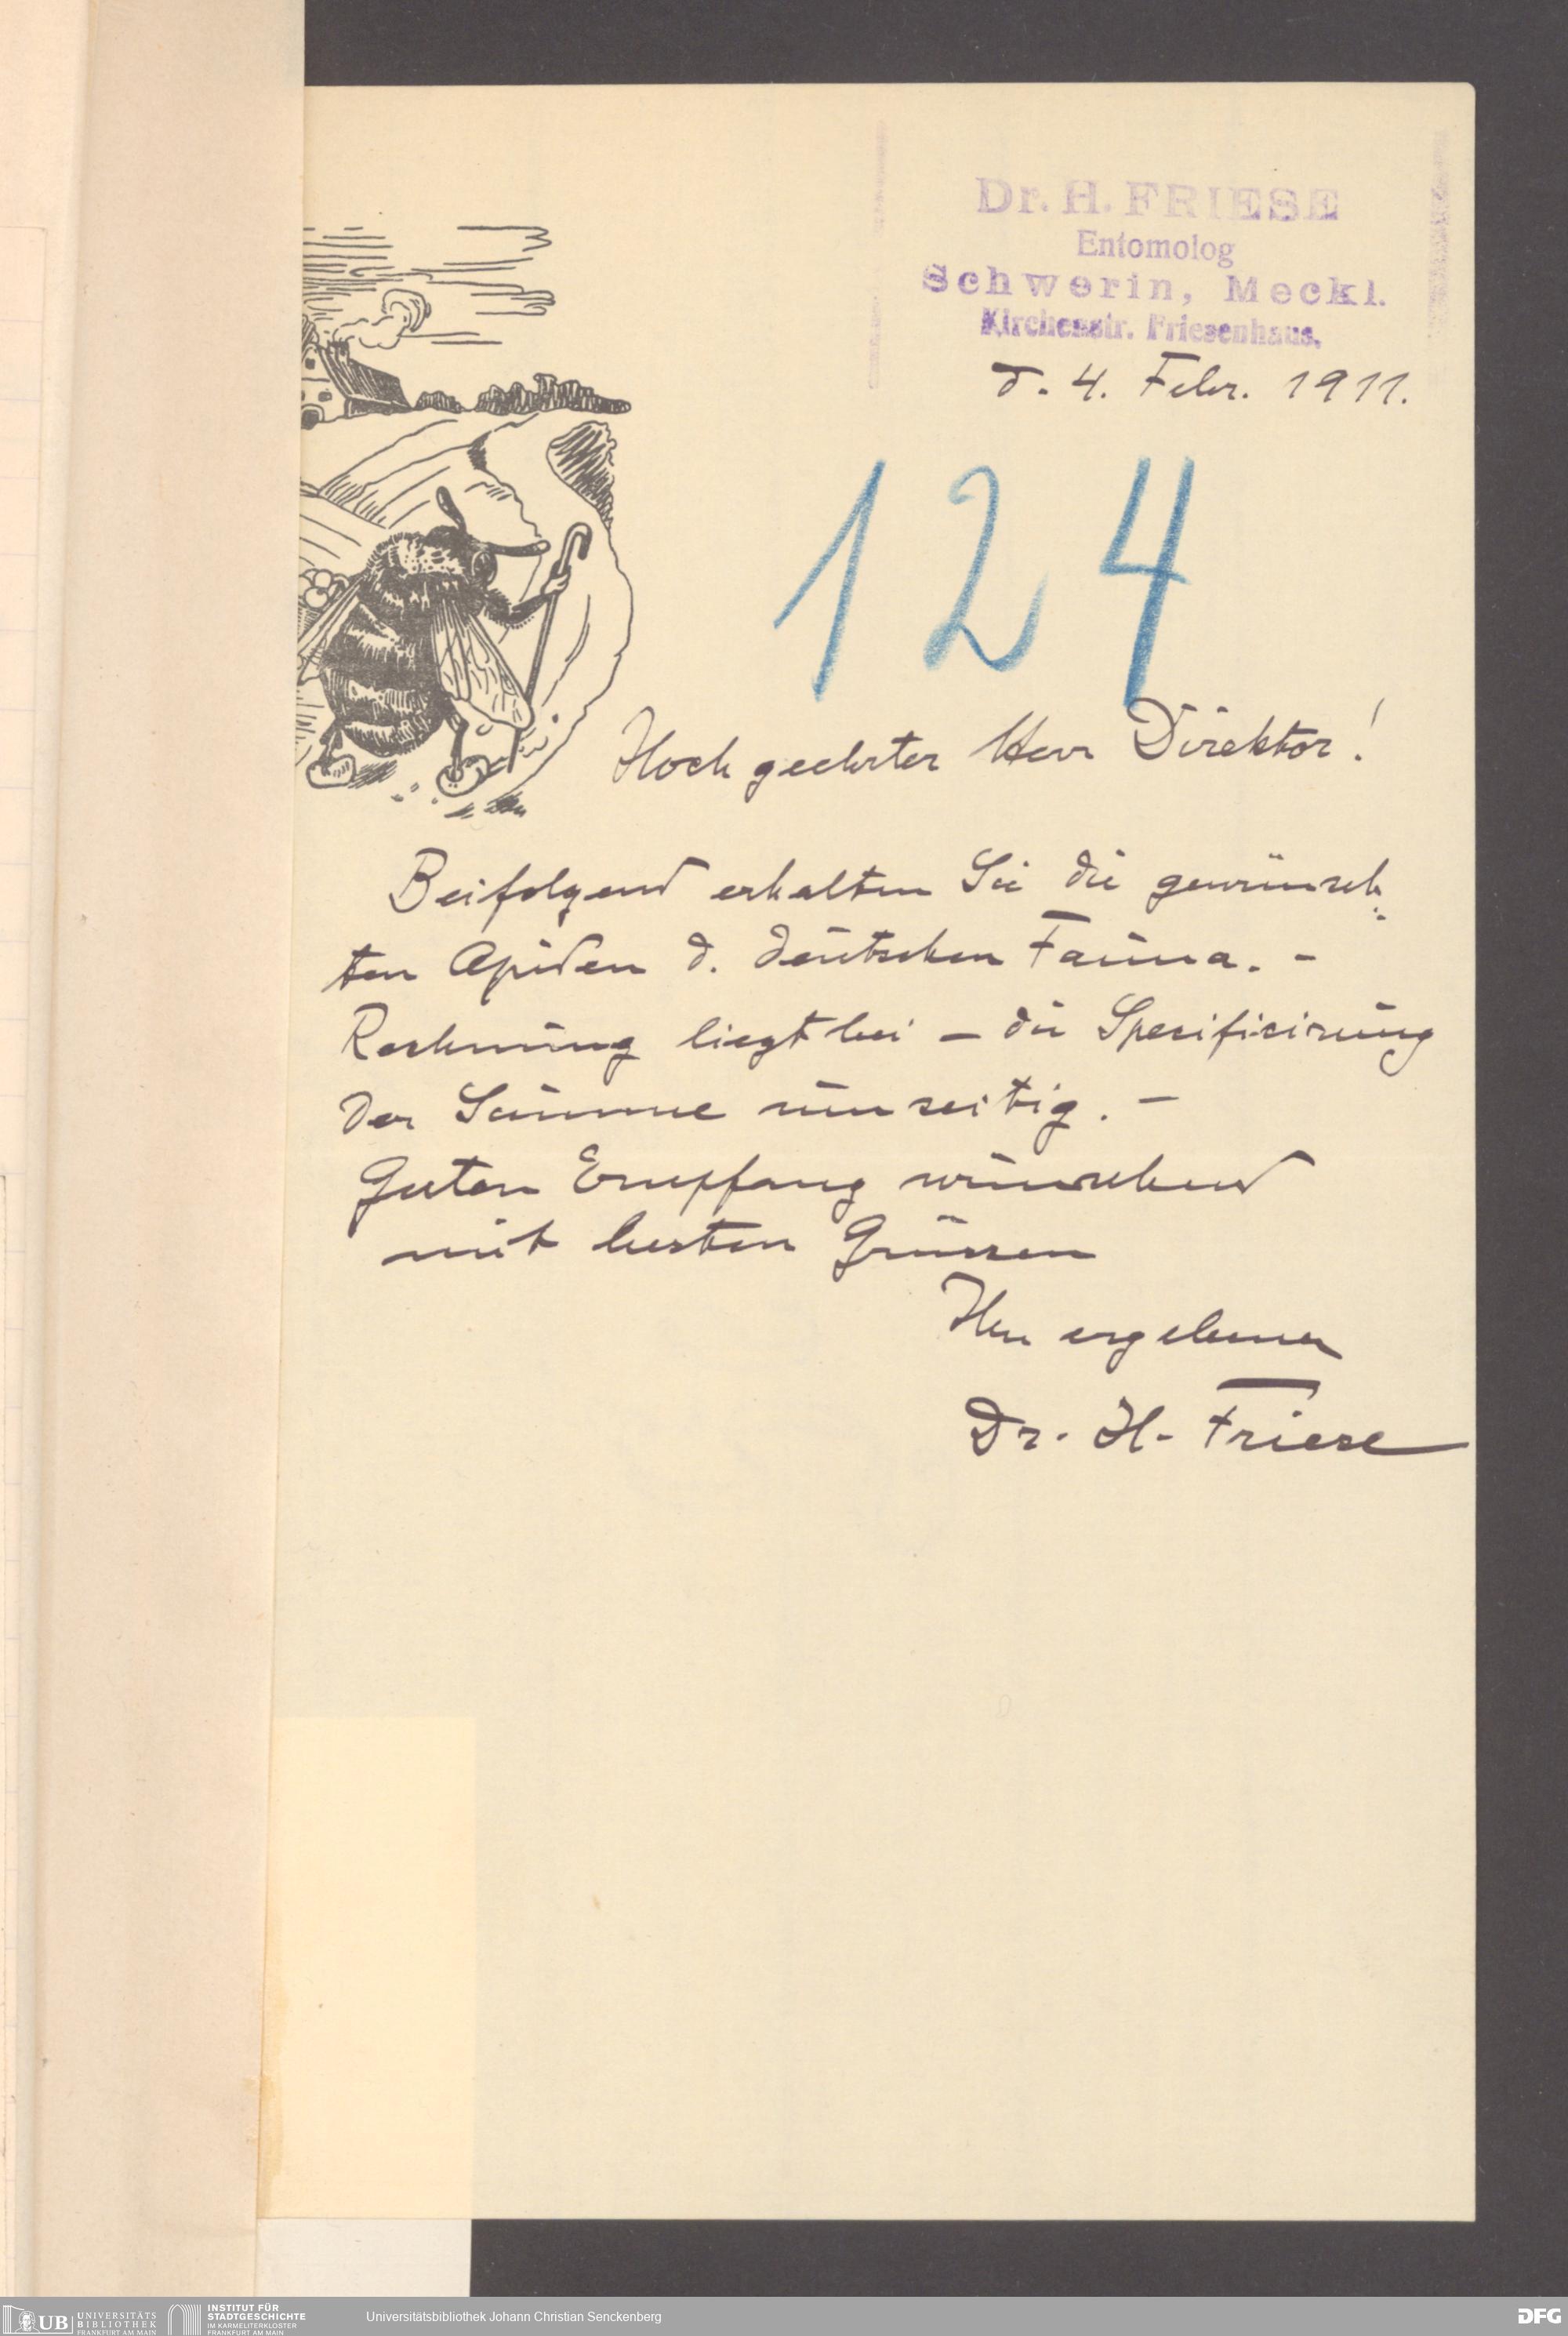 Dr. H. FRIESE
Entomolog
Schwerin, Meckl.
Kirchenstr. Friesenhaus.
d. 4. Febr. 1911.
124
Hochgeehrter Herr Direktor!
Beifolgend erhalten Sie die gewünsch-
ten Apiden d. deutschen Fauna. -
Rechnung liegt bei - die Specificirung
der Summe umseitig. -
Guten Empfang wünschend
mit besten Grüssen
Ihr ergebener
Dr. H. Friese
UB UNIVERSITÄTS
BIBLIOTHEK
FRANKFURT AM MAIN
INSTITUT FÜR
STADTGESCHICHTE
IM KARMELITERKLOSTER
FRANKFURT AM MAIN
Universitätsbibliothek Johann Christian Senckenberg
DFG